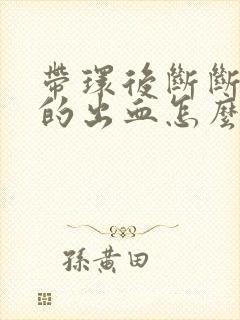 帶環後斷斷
的出血怎麼
孫黃田